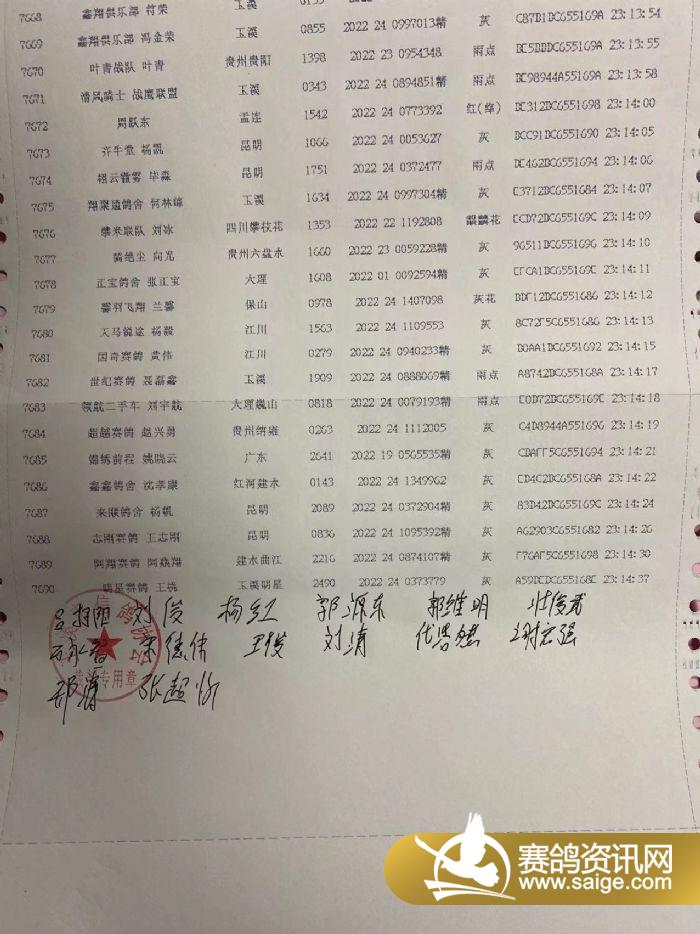 7668 鑫翔俱乐部 符荣 玉溪
7669 鑫翔俱乐部 冯金荣 玉溪 0855 2022 24 0997013精 灰 C87B1DC655169A 23:13:54
7670 叶青战队 叶青 贵州贵阳 1398 2022 23 0954348 雨点 DE5BBDC655169A 23:13:55
7671 清风骑士 战鹰联盟 玉溪 0343 2022 24 0894851精 雨点 DE98944A55169A 23:13:58
7672 周跃东 孟连 1542 2022 24 0773392 红(绛) DE312DC6551698 23:14:00
7673 齐牛堂 杨凯 昆明 1066 2022 24 0053627 灰 DCC91DC6551690 23:14:05
7674 毕淼 昆明 1751 2022 24 0372477 雨点 DE462DC6551694 23:14:06
7675 翔聚通鸽舍 何林锦 玉溪 1634 2022 24 0997304精 灰 C3712DC6551684 23:14:07
7676 攀米联队 刘冰 四川攀枝花 1353 2022 22 1192808 麒麟花 ECD72DC655169C 23:14:09
7677 骑绝尘 向光 贵州六盘水 1660 2022 23 0059228精 灰 96511DC6551696 23:14:10
7678 正宝鸽舍 张正宝 大理 1608 2022 01 0092594精 灰 EFCA1DC655169E 23:14:11
7679 馨羽飞翔 兰馨 保山 0978 2022 24 1407098 灰花 BDF12DC6551686 23:14:12
7680 天马锐途 杨毅 江川 1563 2022 24 1109553 灰 8C72F5C6551686 23:14:13
7681 国奇赛鸽 黄伟 江川 0279 2022 24 0940233精 灰 D0AA1DC6551692 23:14:15
7682 世纪赛鸽 聂磊鑫 玉溪 1909 2022 24 0888069精 雨点 A8742DC655168A 23:14:17
7683 领航二手车 刘宇航 大理巍山 0818 2022 24 0079193精 雨点 E0D72DC655169E 23:14:18
7684 超越赛鸽 赵兴勇 贵州纳雍 0263 2022 24 1112005 灰 C4D8944A551696 23:14:19
7685 锦绣前程 姚晓云 广东 2641 2022 19 0565535精 灰 CDAFF5C6551694 23:14:21
7686 鑫鑫鸽舍 沈孝康 红河建水 0143 2022 24 1349962 灰 ED4C2DC655168A 23:14:22
7687 来顺鸽舍 杨帆 昆明 2089 2022 24 0372904精 灰 83D42DC655169C 23:14:24
7688 志刚赛鸽 王志刚 昆明 0836 2022 24 1095392精 灰 A62903C6551682 23:14:26
7689 阿翔赛鸽 阿焱翔 建水曲江 2216 2022 24 0874107精 灰 F76AF5C6551698 23:14:30
7690 明星赛鸽 王铣 玉溪明星 2490 2022 24 0373779 灰 A59DEDC655168E 23:14:37
刘俊 杨红 郭源东 郭维明
宋德伟 王俊 刘清
张超
专用章
赛鸽资讯网
www.saige.com